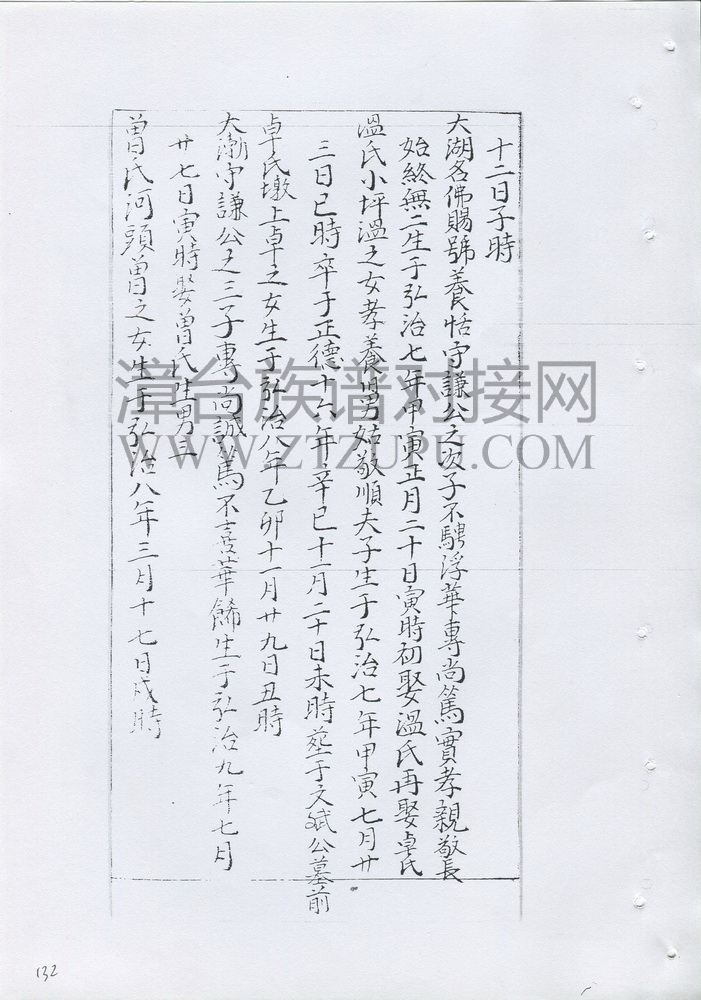 十二日子時
大湖名佛賜號養恬守謙公之次子不騁浮華專尚篤實孝親敬長
始終無二生于弘治七年甲寅正月二十日寅時初娶溫氏再娶卓氏
溫氏小坪溫之女孝養舅姑敬順夫子生于弘治七年甲寅七月廿
三日巳時卒于正德十六年辛巳十一月二十日未時塟于文斌公墓前
卓氏墩上卓之女生于弘治八年乙卯十一月廿九日丑時
大渤守謙公之三子專尚誠篤不喜華餙生于弘治九年七月
廿七日寅時娶曽氏生男三
曽氏河頭曽之女生于弘治八年三月十七日戌時
漳台族谱对接网
WWW.ZTZUPU.COM
132